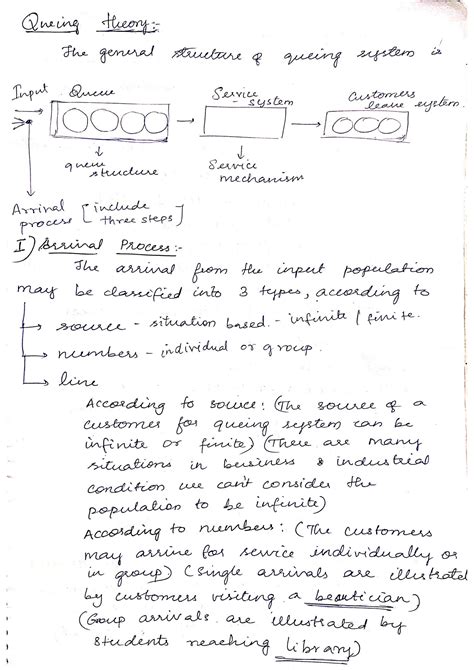 Queing theory:-
The general structure of queing system is
Input Queue Service - system Customers leave system.
queue structure Service mechanism
Arrival process [include three steps]
I) Arrival Process:-
The arrival from the input population
may be classified into 3 types, according to
→ source - situation based - infinite / finite.
→ numbers - individual or group.
→ line
According to source: (The source of a
customer for queing system can be
infinite or finite) (There are many
situations in business & industrial
condition we can't consider the
population to be infinite)
According to numbers: (The customers
may arrive for service individually or
in group) (Single arrivals are illustrated
by customers visiting a beautician)
(Group arrivals are illustrated by
students reaching library)